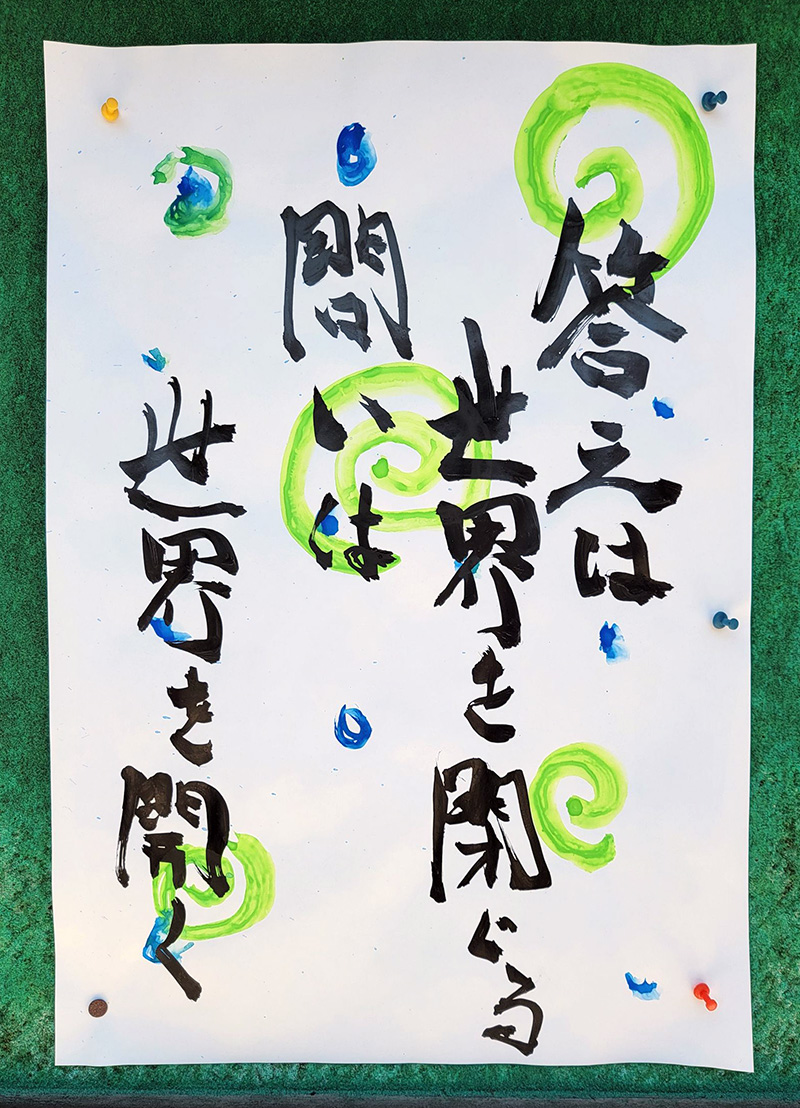 答えは
世界を閉じる
問いは
世界を開く